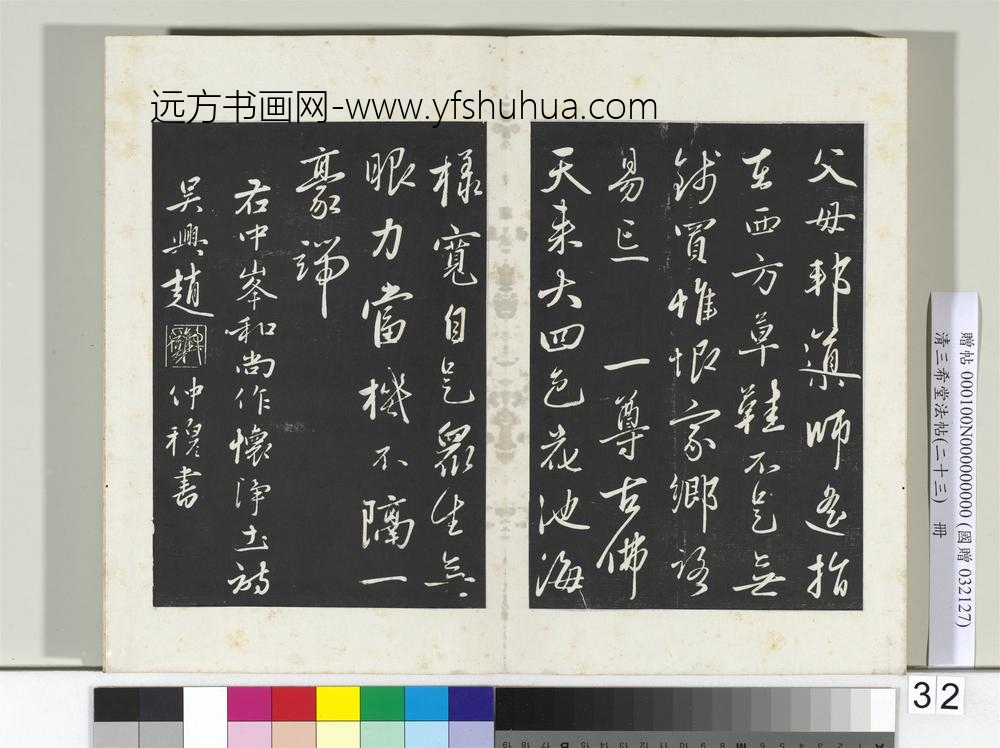 远方书画网-www.yfshuhua.com
父母邦導師遙指
在西方草鞋不是無
錢買惟恨家鄉路
易忘 一尊古佛
天来大四色花池海
樣寬自是眾生無
眼力當機不隔一
豪端
右中峯和尚作懷淨土詩
吳興趙 仲穆書
贈帖 000100N000000000 (國贈 032127)
清三希堂法帖(二十三) 冊
32